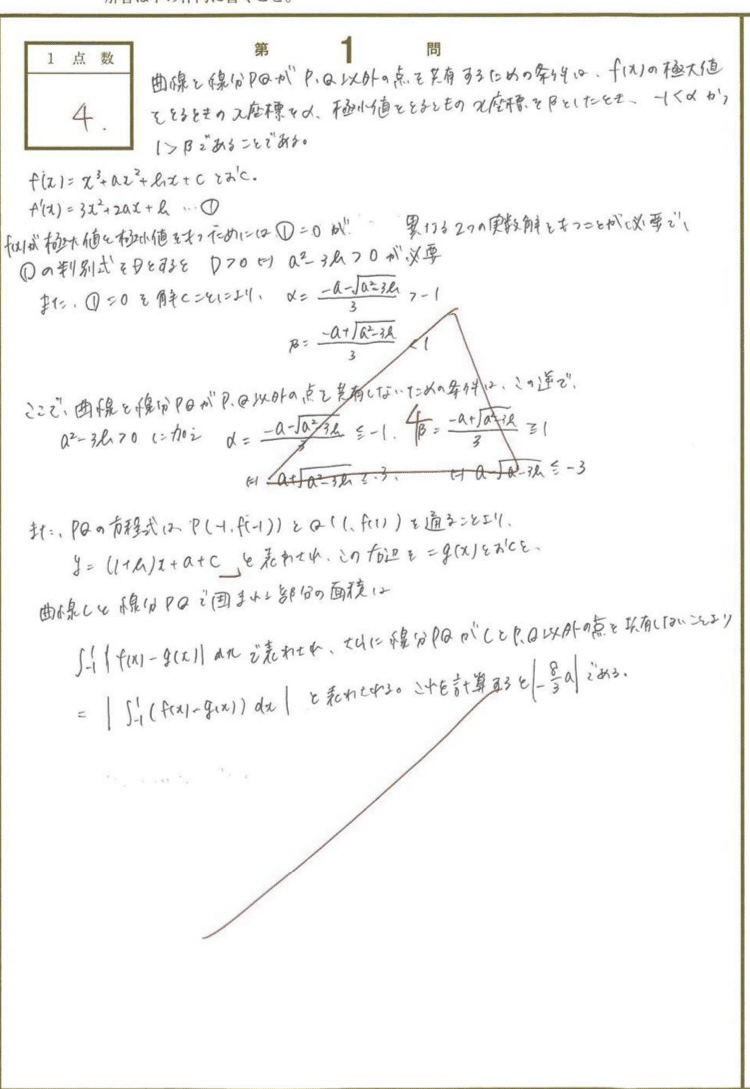 第 1 問
1 点 数
4.
曲線と線分PQがP、Q以外の点を共有するための条件は、f(x)の極大値
をとるときのx座標をα、極小値をとるときのx座標をβとしたとき、-1<αかつ
1>βであることである。
f(x) = x³+ax²+bx+c とおく。
f'(x) = 3x²+2ax+b …①
f(x)が極大値と極小値をもつためには①=0が 異なる2つの実数解をもつことが必要で、
①の判別式をDとすると D>0 ⇔ a²-3b>0が必要
また、①=0を解くことにより、 α= (-a-√(a²-3b))/3 > -1
β= (-a+√(a²-3b))/3 < 1
ここで、曲線と線分PQがP、Q以外の点を共有しないための条件は、この逆で、
a²-3b>0 に加え α= (-a-√(a²-3b))/3 ≦ -1、 β= (-a+√(a²-3b))/3 ≧ 1
4
⇔ a+√(a²-3b) ≦ -3、 ⇔ a-√(a²-3b) ≦ -3
また、PQの方程式は、P(-1, f(-1))とQ(1, f(1))を通ることより、
y = (1+b)x+a+c と表わせれ、この右辺を=g(x)とおくと、
曲線Cと線分PQで囲まれる部分の面積は
∫₋₁¹ |f(x)-g(x)| dx で表わせれ、 線分PQがCとP、Q以外の点を共有しないことより
= |∫₋₁¹ (f(x)-g(x)) dx| と表わせれる。これを計算すると|-8/3 a|である。